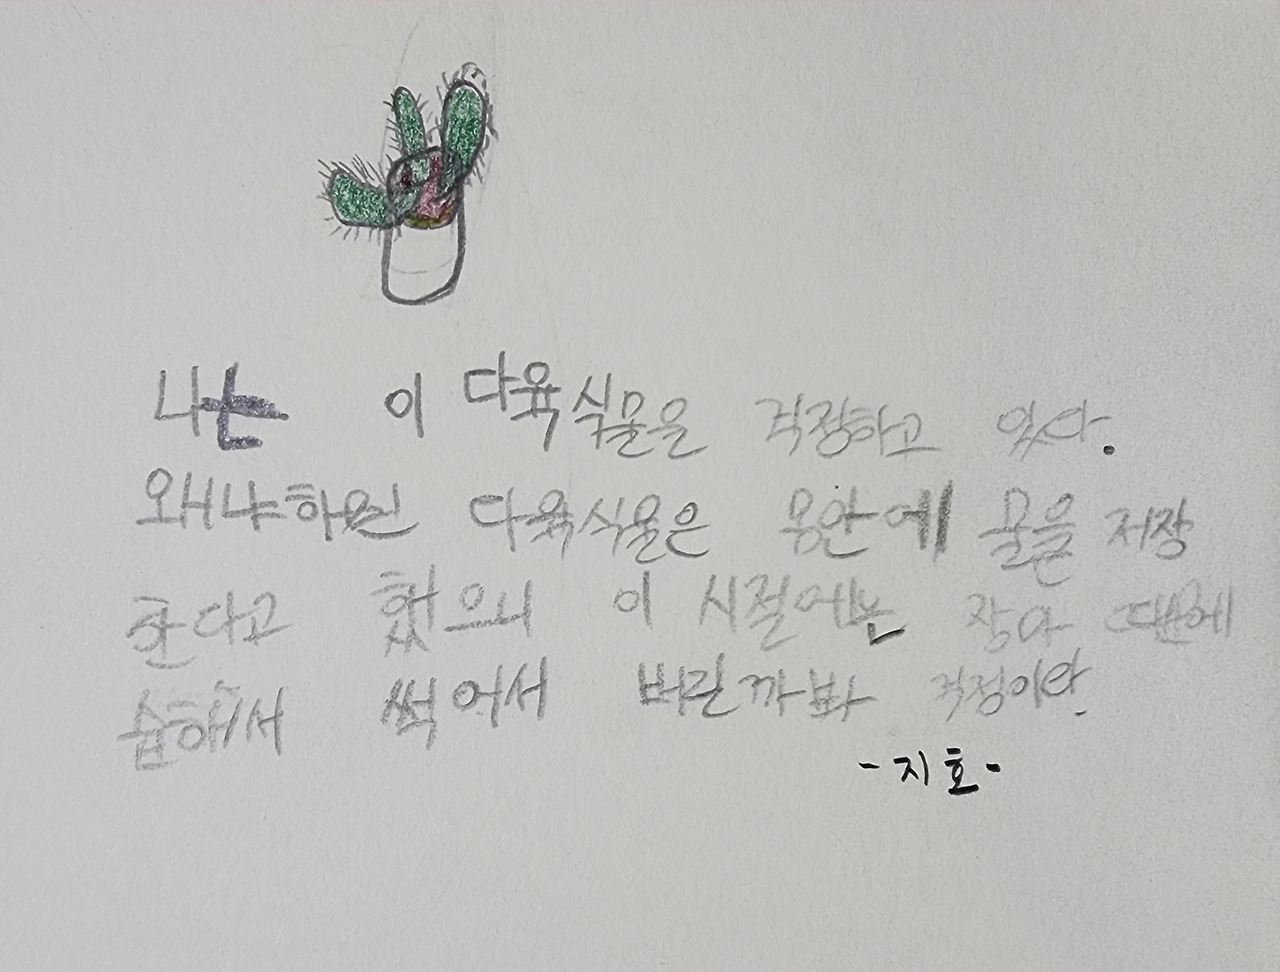 나는 이 다육식물을 걱정하고 있다.
왜냐하면 다육식물은 몸안에 물을 저장
한다고 했으니 이 시절에는 장마 때문에
습해서 썩어서 버릴까봐 걱정이다.
-지호-